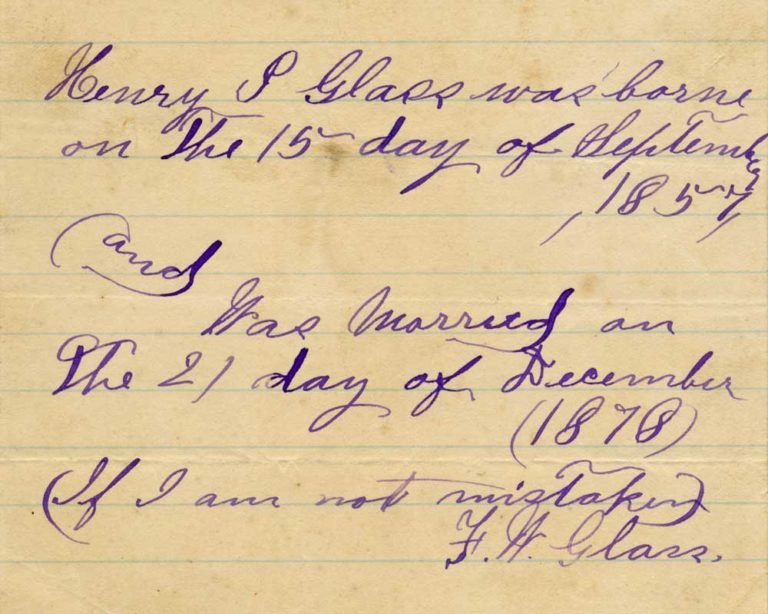 Henry P Glass was borne
on The 15 day of September
, 1857,
and
Was Morried on
The 21 day of December
(1878)
(If I am not mistaken)
F. H. Glass.